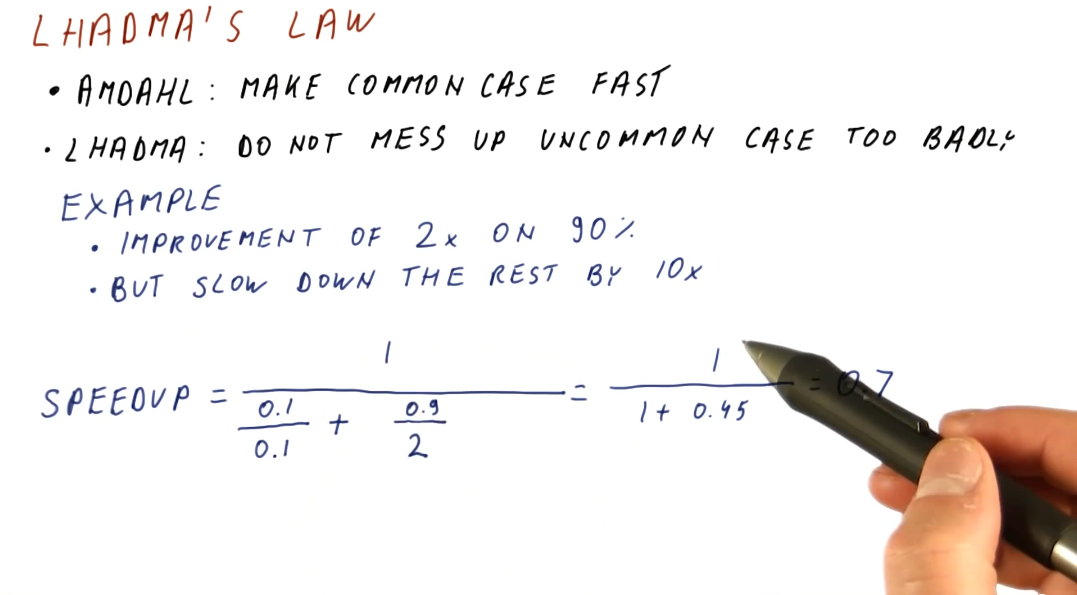 LHADMA'S LAW
• AMDAHL: MAKE COMMON CASE FAST
• LHADMA: DO NOT MESS UP UNCOMMON CASE TOO BADLY
EXAMPLE
• IMPROVEMENT OF 2x ON 90%
• BUT SLOW DOWN THE REST BY 10x
SPEEDUP = 1 / (0.1/0.1 + 0.9/2) = 1 / (1 + 0.45) = 0.7